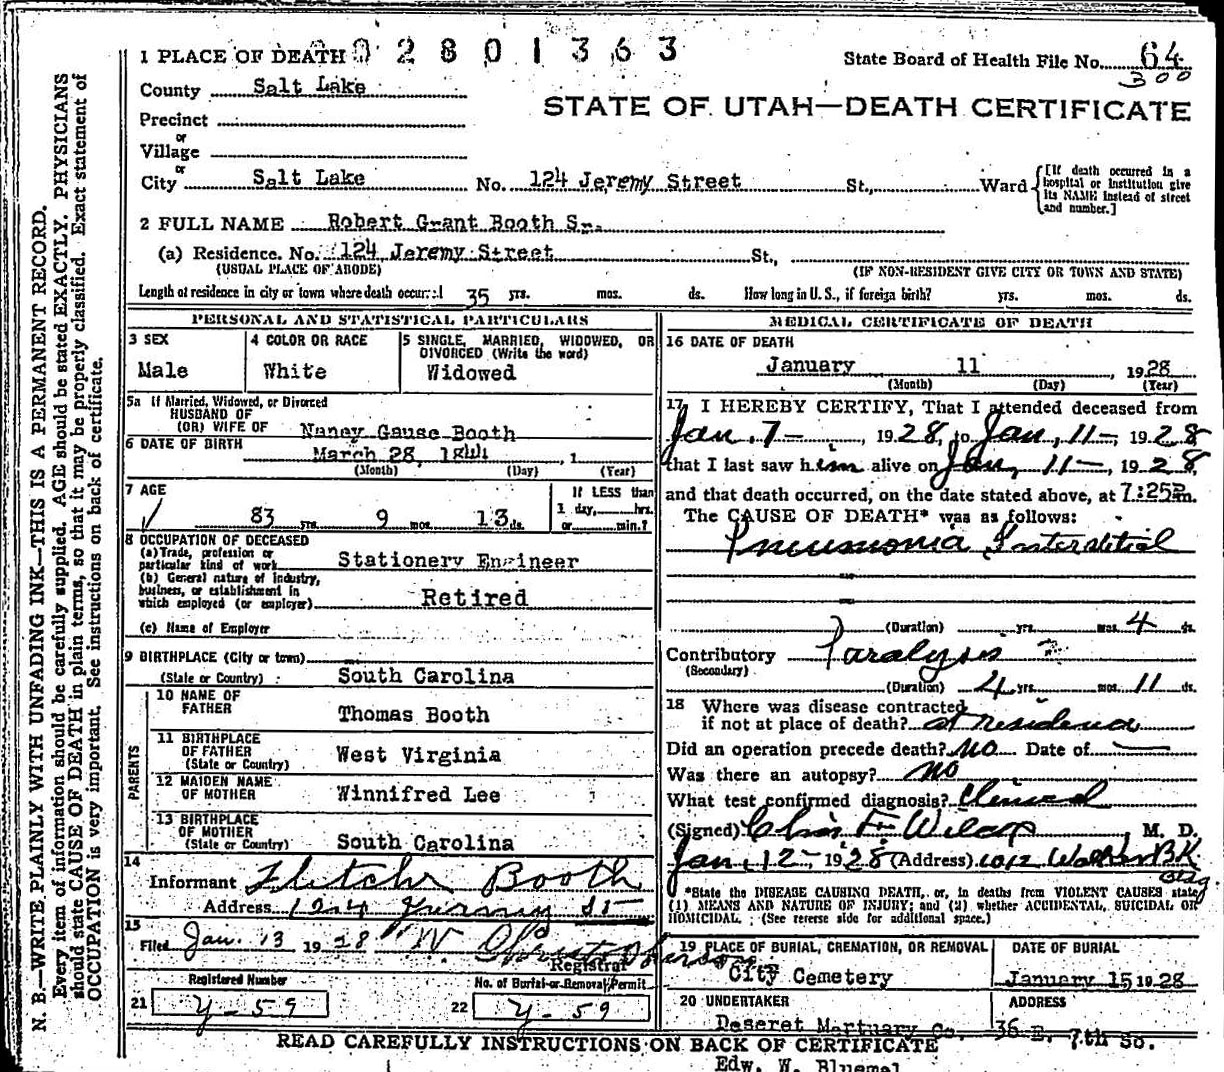 N. B.—WRITE PLAINLY WITH UNFADING INK—THIS IS A PERMANENT RECORD.
Every item of information should be carefully supplied. AGE should be stated EXACTLY. PHYSICIANS
should state CAUSE OF DEATH in plain terms, so that it may be properly classified. Exact statement of
OCCUPATION is very important. See instructions on back of certificate.
1 PLACE OF DEATH 02801363
State Board of Health File No. 64
300
County Salt Lake
STATE OF UTAH—DEATH CERTIFICATE
Precinct
or
Village
or
City Salt Lake No. 124 Jeremy Street St., Ward
[If death occurred in a
hospital or institution give
its NAME instead of street
and number.]
2 FULL NAME Robert Grant Booth Sr.
(a) Residence. No. 124 Jeremy Street St.,
(USUAL PLACE OF ABODE) (IF NON-RESIDENT GIVE CITY OR TOWN AND STATE)
Length of residence in city or town where death occurred 35 yrs. mos. ds. How long in U. S., if foreign birth? yrs. mos. ds.
PERSONAL AND STATISTICAL PARTICULARS
3 SEX
Male
4 COLOR OR RACE
White
5 SINGLE, MARRIED, WIDOWED, OR
DIVORCED (Write the word)
Widowed
5a If Married, Widowed, or Divorced
HUSBAND OF
(OR) WIFE OF Nancy Gause Booth
6 DATE OF BIRTH March 28, 1844, 1
(Month) (Day) (Year)
7 AGE
83 yrs. 9 mos. 13 ds.
If LESS than
1 day, hrs.
or min.?
8 OCCUPATION OF DECEASED
(a) Trade, profession or
particular kind of work Stationery Engineer
(b) General nature of industry,
business, or establishment in
which employed (or employer) Retired
(c) Name of Employer
9 BIRTHPLACE (City or town)
(State or Country) South Carolina
PARENTS
10 NAME OF
FATHER Thomas Booth
11 BIRTHPLACE
OF FATHER
(State or Country) West Virginia
12 MAIDEN NAME
OF MOTHER Winnifred Lee
13 BIRTHPLACE
OF MOTHER
(State or Country) South Carolina
14
Informant Fletcher Booth
Address 124 Jeremy St
15
Filed Jan. 13 1928 W. Christopherson
Registrar
Registered Number
21 Y-59
No. of Burial or Removal Permit
22 Y-59
MEDICAL CERTIFICATE OF DEATH
16 DATE OF DEATH
January 11, 1928
(Month) (Day) (Year)
17 I HEREBY CERTIFY, That I attended deceased from
Jan. 7—, 1928, to Jan, 11—, 1928
that I last saw him alive on Jan, 11—, 1928,
and that death occurred, on the date stated above, at 7:25 m.
The CAUSE OF DEATH* was as follows:
Pneumonia Interstitial
(Duration) yrs. mos. 4 ds.
Contributory Paralysis
(Secondary)
(Duration) 4 yrs. mos. 11 ds.
18 Where was disease contracted
if not at place of death? at residence
Did an operation precede death? no Date of —
Was there an autopsy? no
What test confirmed diagnosis? Clinical
(Signed) Chas F Wilcox, M. D.
Jan, 12—, 1928 (Address) 1012 Walker BK
Bldg.
*State the DISEASE CAUSING DEATH, or, in deaths from VIOLENT CAUSES state
(1) MEANS AND NATURE OF INJURY; and (2) whether ACCIDENTAL, SUICIDAL OR
HOMICIDAL. (See reverse side for additional space.)
19 PLACE OF BURIAL, CREMATION, OR REMOVAL
City Cemetery
DATE OF BURIAL
January 15 1928
20 UNDERTAKER
Deseret Mortuary Co.
ADDRESS
36 E. 7th So.
READ CAREFULLY INSTRUCTIONS ON BACK OF CERTIFICATE
Edw. W. Bluemel